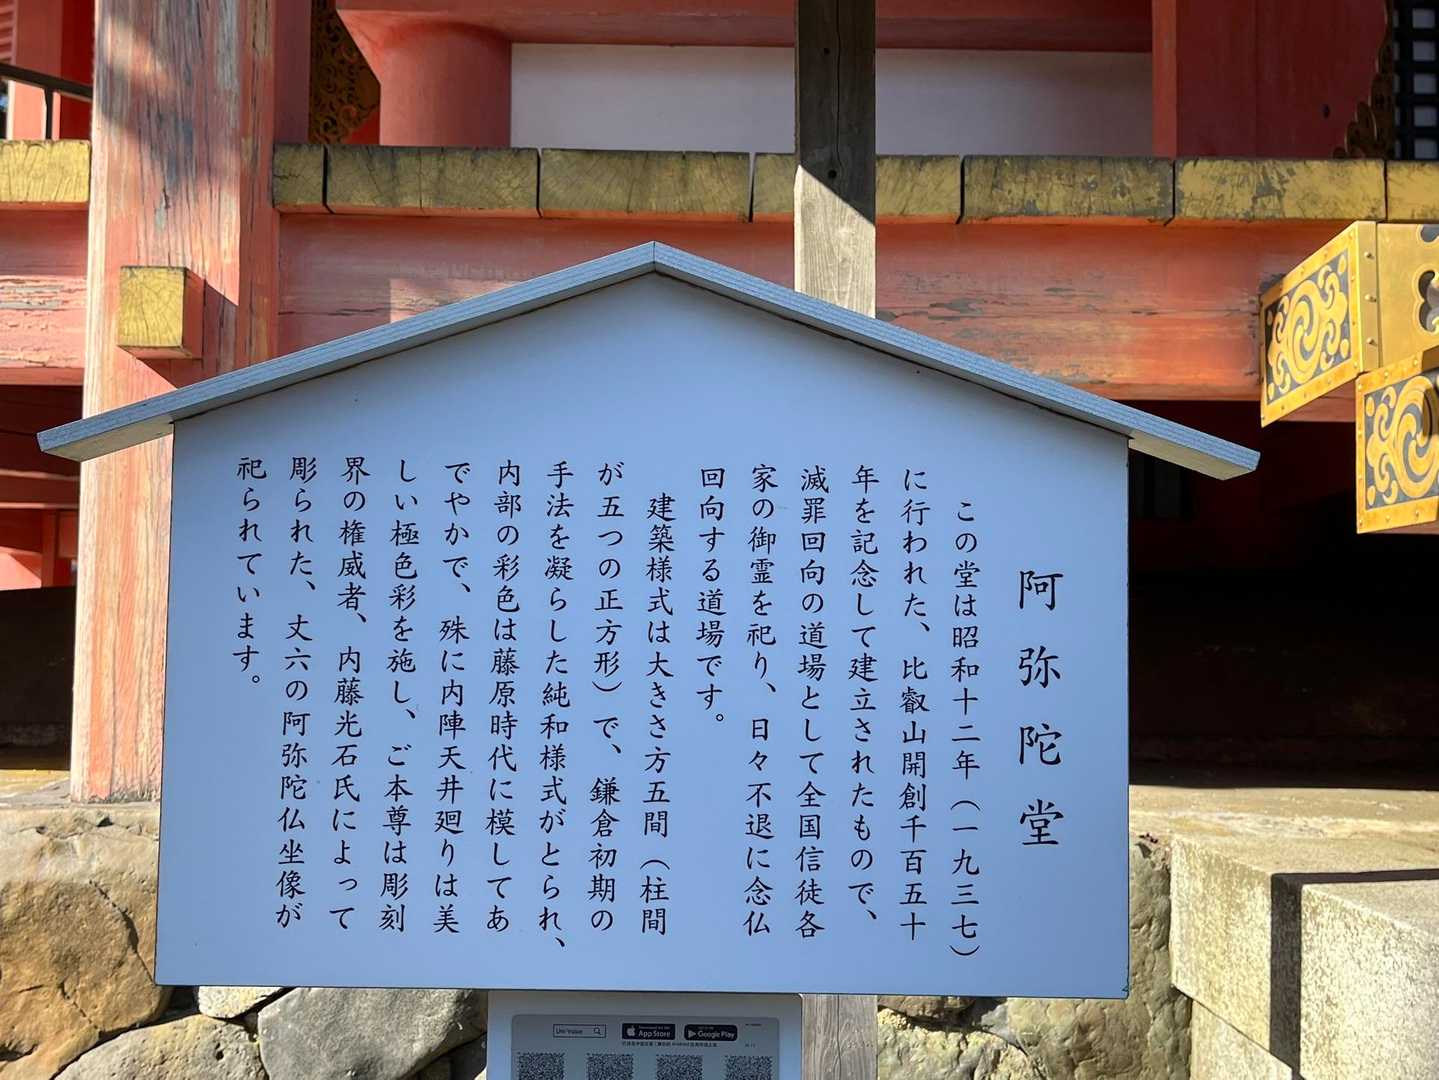 阿弥陀堂
この堂は昭和十二年（一九三七）
に行われた、比叡山開創千百五十
年を記念して建立されたもので、
滅罪回向の道場として全国信徒各
家の御霊を祀り、日々不退に念仏
回向する道場です。
建築様式は大きさ方五間（柱間
が五つの正方形）で、鎌倉初期の
手法を凝らした純和様式がとられ、
内部の彩色は藤原時代に模してあ
でやかで、殊に内陣天井廻りは美
しい極色彩を施し、ご本尊は彫刻
界の権威者、内藤光石氏によって
彫られた、丈六の阿弥陀仏坐像が
祀られています。
Uni-Voice
App Store
Google Play